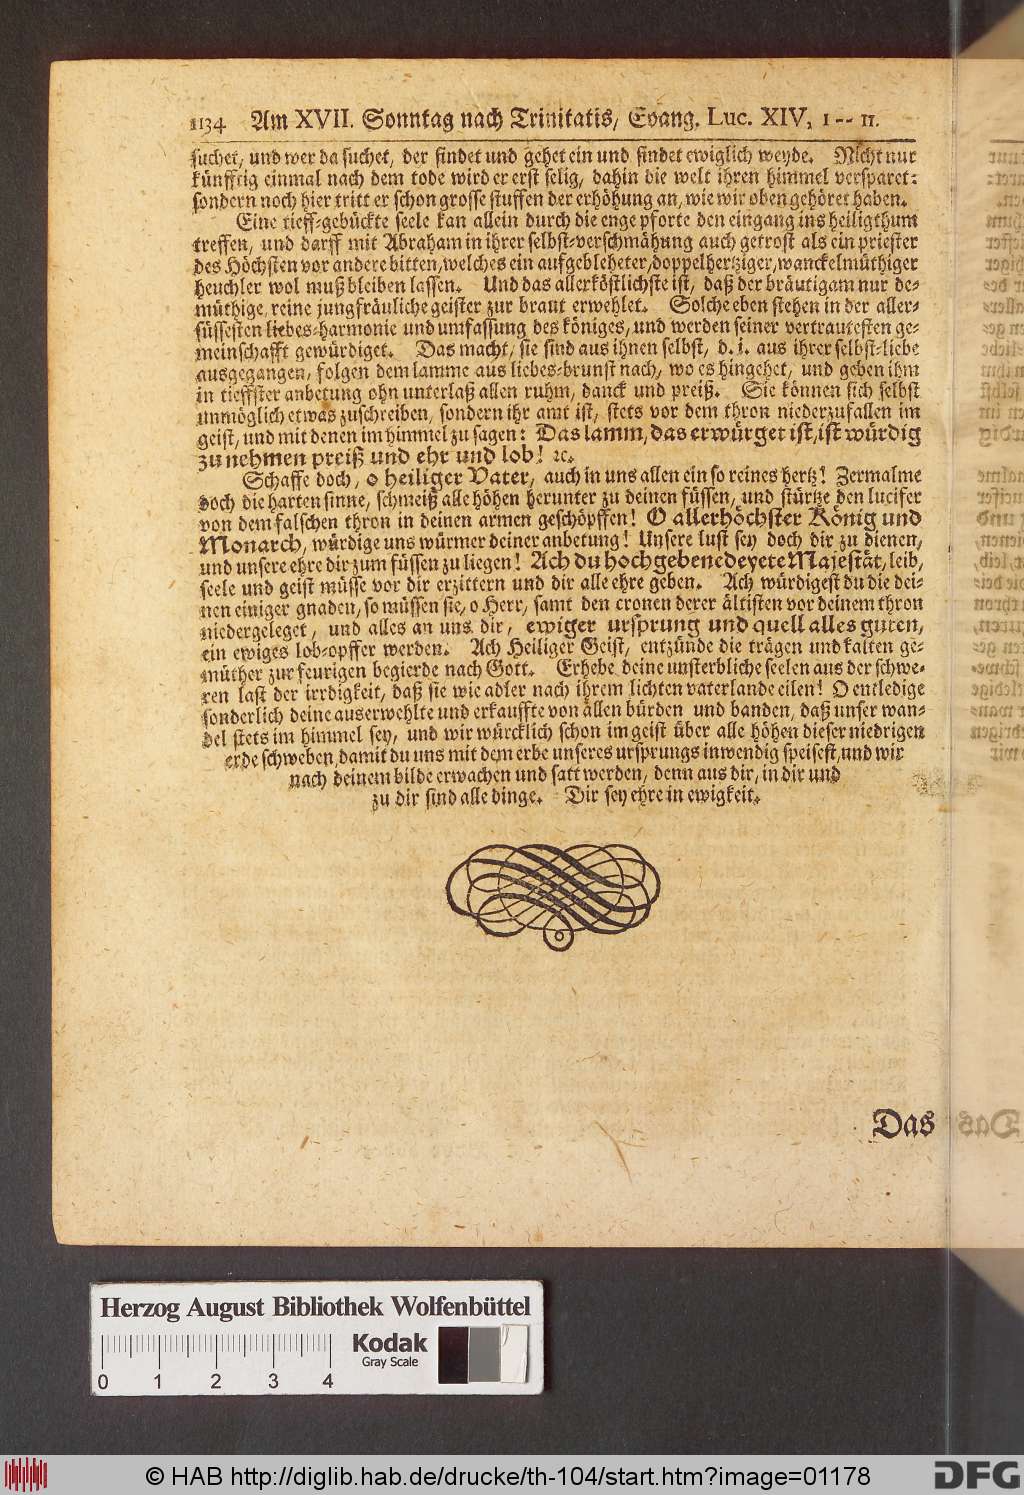 1134 Am XVII. Sonntag nach Trinitatis, Evang. Luc. XIV, 1 -- 11.
suchet, und wer da suchet, der findet und gehet ein und findet ewiglich weyde. Nicht nur
künfftig einmal nach dem tode wird er erst selig, dahin die welt ihren himmel versparet:
sondern noch hier tritt er schon grosse stuffen der erhöhung an, wie wir oben gehöret haben.
Eine tieff-gebückte seele kan allein durch die enge pforte den eingang ins heiligthum
treffen, und darff mit Abraham in ihrer selbst-verschmähung auch getrost als ein priester
des Höchsten vor andere bitten, welches ein aufgebleheter, doppelhertziger, wanckelmüthiger
heuchler wol muß bleiben lassen. Und das allerköstlichste ist, daß der bräutigam nur de-
müthige, reine jungfräuliche geister zur braut erwehlet. Solche eben stehen in der aller-
süssesten liebes-harmonie und umfassung des königes, und werden seiner vertrautesten ge-
meinschafft gewürdiget. Das macht, sie sind aus ihnen selbst, d. i. aus ihrer selbst-liebe
ausgegangen, folgen dem lamme aus liebes-brunst nach, wo es hingehet, und geben ihm
in tieffster anbetung ohn unterlaß allen ruhm, danck und preiß. Sie können sich selbst
unmöglich etwas zuschreiben, sondern ihr amt ist, stets vor dem thron niederzufallen im
geist, und mit denen im himmel zu sagen: Das lamm, das erwürget ist, ist würdig
zu nehmen preiß und ehr und lob! ꝛc.
Schaffe doch, o heiliger Vater, auch in uns allen ein so reines hertz! Zermalme
doch die harten sinne, schmeiß alle höhen herunter zu deinen füssen, und stürtze den lucifer
von dem falschen thron in deinen armen geschöpffen! O allerhöchster König und
Monarch, würdige uns würmer deiner anbetung! Unsere lust sey doch dir zu dienen,
und unsere ehre dir zum füssen zu liegen! Ach du hochgebenedeyete Majestät, leib,
seele und geist müsse vor dir erzittern und dir alle ehre geben. Ach würdigest du die dei-
nen einiger gnaden, so müssen sie, o Herr, samt den cronen derer ältisten vor deinem thron
niedergeleget, und alles an uns dir, ewiger ursprung und quell alles guten,
ein ewiges lob-opffer werden. Ach Heiliger Geist, entzünde die trägen und kalten ge-
müther zur feurigen begierde nach Gott. Erhebe deine unsterbliche seelen aus der schwe-
ren last der irrdigkeit, daß sie wie adler nach ihrem lichten vaterlande eilen! O entledige
sonderlich deine auserwehlte und erkauffte von allen bürden und banden, daß unser wan-
del stets im himmel sey, und wir würcklich schon im geist über alle höhen dieser niedrigen
erde schweben, damit du uns mit dem erbe unseres ursprungs inwendig speisest, und wir
nach deinem bilde erwachen und satt werden, denn aus dir, in dir und
zu dir sind alle dinge. Dir sey ehre in ewigkeit.
Das
Herzog August Bibliothek Wolfenbüttel
Kodak
Gray Scale
0 1 2 3 4
© HAB http://diglib.hab.de/drucke/th-104/start.htm?image=01178
DFG